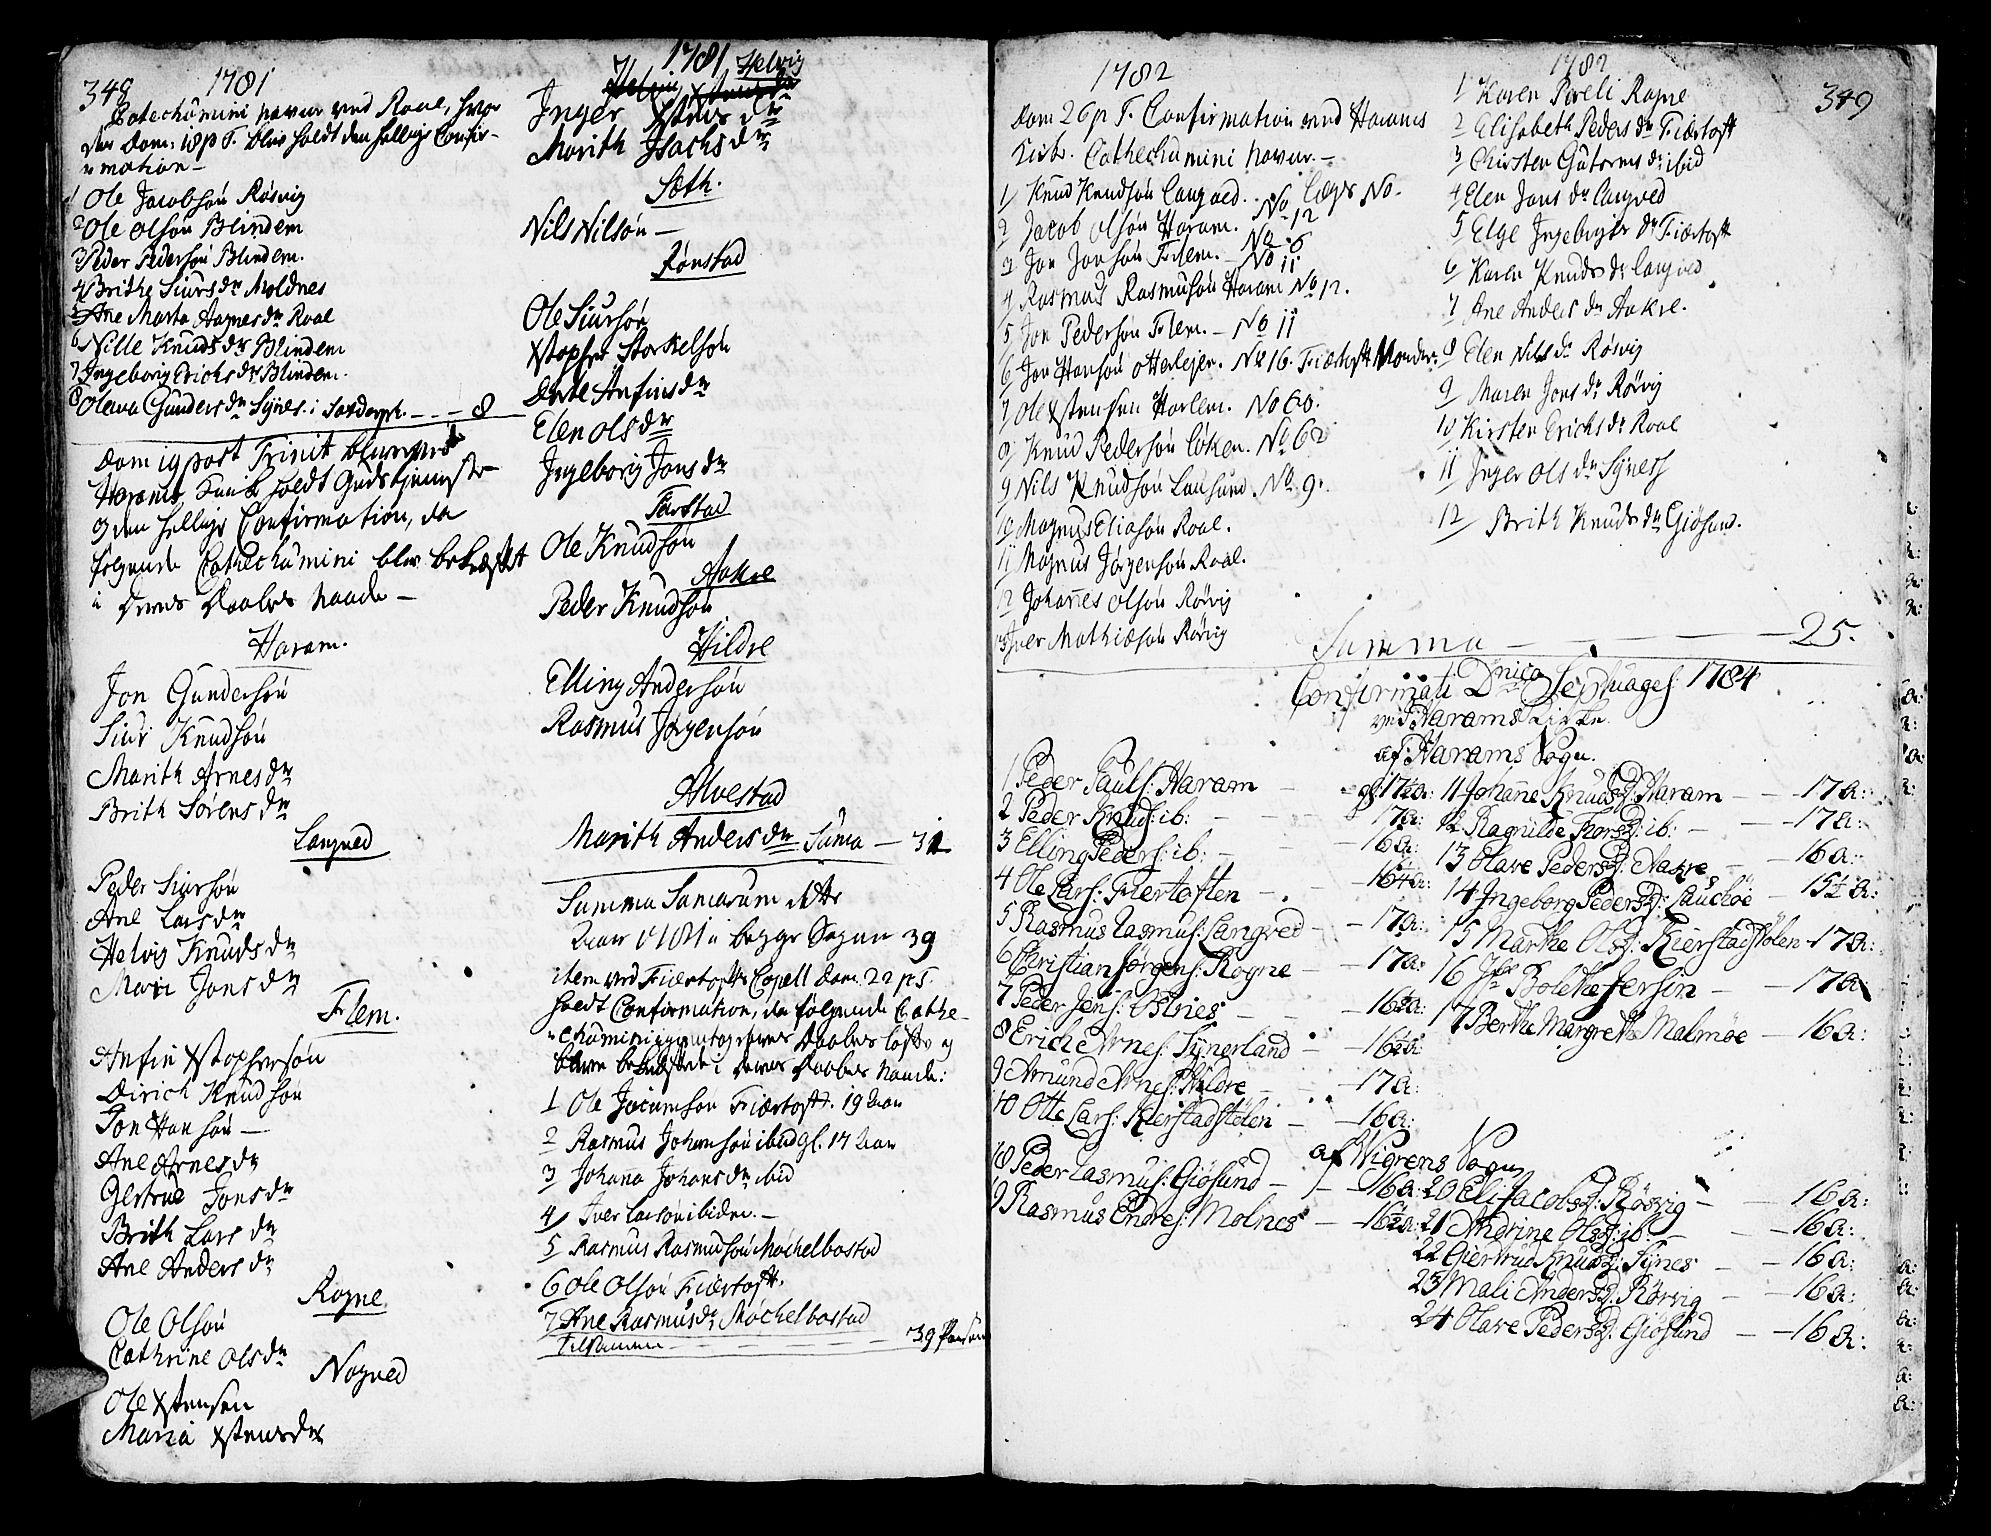 348 1781
Catechumini navne ved Roal, hvor
der Dom: 18 p T. blev holdt den hellige Confir-
mation –
1 Ole Jacobsøn Røsvig
2 Ole Olsøn Blindem
3 Peder Pedersøn Blindem.
4 Brithe Siursdr Moldnes
5 Ane Marta Aagnesdr Roal
6 Nille Knudsdr Blindem
7 Ingeborig Erichsdr Blindem.
8 Olena Gundersdr Synes i – – 8
Dom 19 post Trinit blev ved
Harams Kirke holdt Gudstjeneste
og den hellige Confirmation, da
følgende Cathechumini blev bekræftet
i deres Daabes Naade –
Haram.
Jon Gundersøn
Siur Knudsøn
Marith Arnesdr
Brith Sørensdr
Langved
Peder Siursøn
Ane Larsdr
Helvig Knudsdr
Mari Jonsdr
Flem.
Anfin Xstophersøn
Dirich Knudsøn
Jon Hansøn –
Ane Arnesdr
Gertrud Jonsdr
Brith Larsdr
Ane Andersdr
Rogne
Ole Olsøn
Cathrine Olsdr
Nogved
Ole Xstensen
Maria Xstensdr
1781 Helvig
Inger Xstensdr
Marith Isachsdr
Sæth.
Nils Nilsøn –
Rønstad
Ole Siursøn
Xstopher Storkelsøn
Anfinsdr
Elen Olsdr
Ingeborig Jonsdr
Farstad
Ole Knudsøn
Aakre
Peder Knudsøn
Hildre
Elling Andersøn
Rasmus Jørgensøn
Alvestad
Marith Andersdr Suma – 31
Summa Sumarum dette
Aar 1781 i begge Sogne 39
item ved Fiærtofts Capell Dom. 22 p T.
holdt Confirmation, da følgende Cathe-
chumini igientog deres Daabes løfte og
bleve bekræftet i deres Daabes Naade:
1 Ole Joeumsøn Fiærtoft. 19 Aar
2 Rasmus Johansøn ibid gl. 17 Aar
3 Johana Johansdr ibid
4 Iver Larsøn ibidem. –
5 Rasmus Rasmusøn Mochelbostad
6 Ole Olsøn Fiærtoft.
7 Ane Rasmusdr Mochelbostad
Tilsammen – – – – – 39 Personer
1782
Dom 26 p T. Confirmation ved Harams
Kirke. Cathechumini navne. –
1 Knud Knudsøn Langved. Lægs No.
2 Jacob Olsøn Haram. No 12
3 Jon Jonsøn Flem. – No 6
4 Rasmus Rasmusøn Haram No 12.
5 Jon Pedersøn Flem. – No 11
6 Jon Hansøn Otterlejen. No 16. Fiærtoft
7 Ole Xstensen Harlem. No 60.
8 Knud Pedersøn Løken. No 62
9 Nils Knudsøn Lausund. No 9.
10 Magnus Eliasøn Roal.
11 Magnus Jørgensøn Roal.
12 Johannes Olsøn Rørvig
13 Iver Mathiasøn Rørvig
1782
349
1 Karen Poveli Rogne
2 Elisabeth Pedersdr Fiærtoft
3 Chirsten Gutormsdr ibid
4 Elen Jonsdr Langved
5 Elge Ingebrigtsdr Fiærtoft
6 Karen Knudsdr Langved
7 Ane Andersdr Aakre.
8 Elen Nilsdr Røsvig
9 Maren Jonsdr Rørvig
10 Kirsten Erichsdr Roal
11 Inger Olsdr Synes
12 Brith Knudsdr Giøsund.
Summa – – – – 25.
Confirmati Dnica Septuages: 1784
ved Harams Kirke.
af Harams Sogn.
1 Peder Pauls: Haram – gl. 17½ a:
2 Peder Knuds: ib: – – – 17 a:
3 Elling Peders: ib: – – – 16 a:
4 Ole Lars: Fiertoften – – 16¼ a:
5 Rasmus Rasmus: Langved – – 17 a:
6 Christian Jørgens: Rogne – – 17 a:
7 Peder Jens: Ulnes – – – 16½ a:
8 Erich Arnes: Synerland – – 16½ a:
9 Amund Arnes: Hildre – – 17 a:
10 Otte Lars: Kierstadstølen – – 16 a:
11 Johanne Knudsd: Haram – – 17 a:
12 Ragnilde Thorsd: ib: – – – 17 a:
13 Olave Pedersd: Aakre – – 16 a:
14 Ingeborg Pedersd: Lauchøe – 15½ a:
15 Marthe Olsd: Kierstadstølen – 17 a:
16 Jfr Bolette Jersin – – 17 a
17 Berthe Margrethe Malmøe – 16 a:
af Wigrens Sogn
18 Peder Rasmus: Giøsund – – 16 a:
19 Rasmus Endres: Molnes – 16½ a:
20 Eli Jacobsd: Røsvig – – 16 a:
21 Andrine Olsd: ib. – – – 16 a:
22 Giertrud Knudsd: Synes – – 16 a:
23 Mali Andersd: Rørvig – – 16 a:
24 Olave Pedersd: Giøsund – – 16 a: